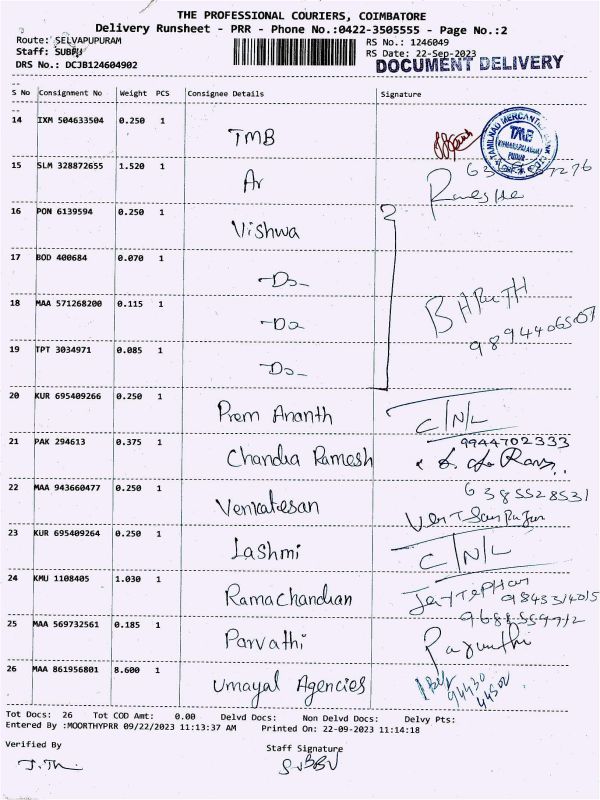 THE PROFESSIONAL COURIERS, COIMBATORE
Delivery Runsheet - PRR - Phone No.:0422-3505555 - Page No.:2
Route: SELVAPUPURAM RS No.: 1246049
Staff: SUBBU RS Date: 22-Sep-2023
DRS No.: DCJB124604902 DOCUMENT DELIVERY
S No Consignment No Weight PCS Consignee Details Signature
14 IXM 504633504 0.250 1 TMB
TAMILNAD MERCANTILE BANK TMB
15 SLM 328872655 1.520 1 Ar
16 PON 6139594 0.250 1 Vishwa
17 BOD 400684 0.070 1 -Do-
18 MAA 571268200 0.115 1 -Do BHRUTH
19 TPT 3034971 0.085 1 Do- 9894406507
20 KUR 695409266 0.250 1 Prem Ananth C/N/L
21 PAK 294613 0.375 1 Chandra Ramesh 9944702333
22 MAA 943660477 0.250 1 Venkatesan 6385528531
23 KUR 695409264 0.250 1 Lashmi C/N/L
24 KMU 1108405 1.030 1 Ramachandran
25 MAA 569732561 0.185 1 Parvathi
26 MAA 861956801 8.600 1 Umayal Agencies 94430
Tot Docs: 26 Tot COD Amt: 0.00 Delvd Docs: Non Delvd Docs: Delvy Pts:
Entered By :MOORTHYPRR 09/22/2023 11:13:37 AM Printed On: 22-09-2023 11:14:18
Verified By Staff Signature
SUBBU